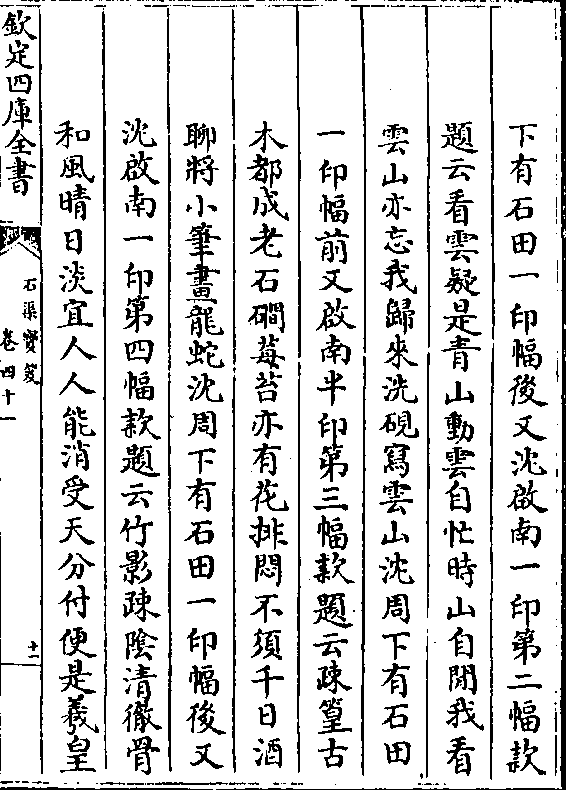 下有石田一印幅後又沈啟南一印第二幅款
題云看雲疑是青山動雲自忙時山自閒我看
雲山亦忘我歸來洗硯寫雲山沈周下有石田
一印幅前又啟南半印第三幅款題云疎篁古
木都成老石磵莓苔亦有花排悶不須千日酒
聊將小筆畫龍蛇沈周下有石田一印幅後又
沈啟南一印第四幅款題云竹影疎陰清徹骨
和風晴日淡宜人人能消受天分付便是羲皇
欽定四庫全書
石渠寶笈
卷四十一
十二